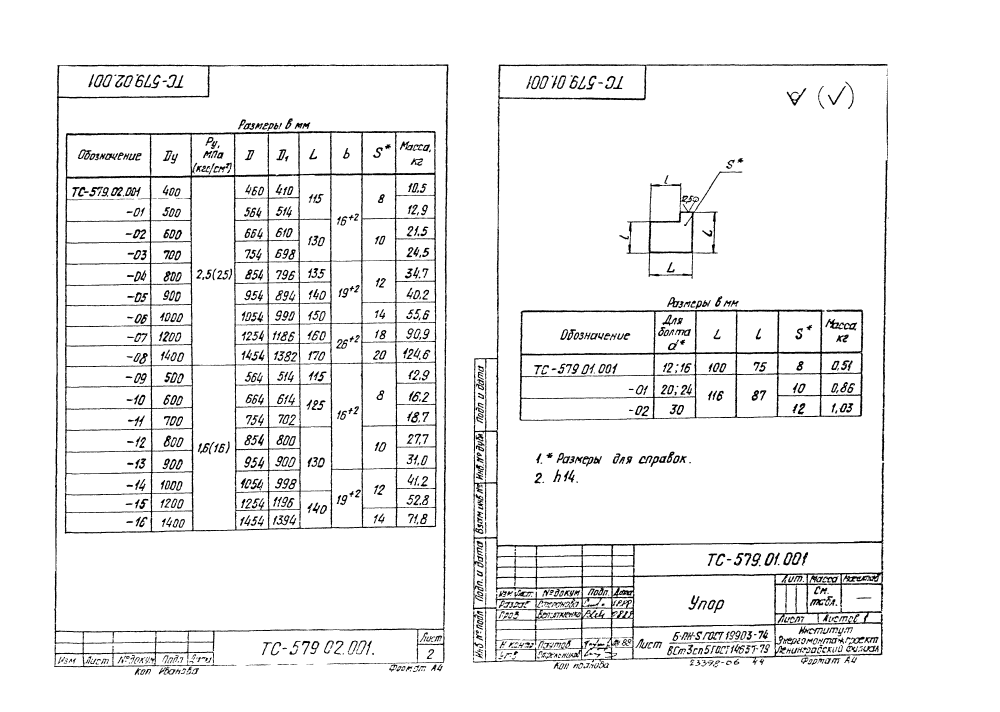 ТС-579.02.001
Размеры в мм
Обозначение Dу Ру, МПа (кгс/см²) D D₁ L b S* Масса, кг
ТС-579.02.001 400 2,5(25) 460 410 115 16⁺² 8 10,5
-01 500 564 514 12,9
-02 600 664 610 130 10 21.5
-03 700 754 698 24,5
-04 800 854 796 135 19⁺² 12 34,7
-05 900 954 894 140 40,2
-06 1000 1054 990 150 14 55,6
-07 1200 1254 1186 160 26⁺² 18 90,9
-08 1400 1454 1382 170 20 124,6
-09 500 1,6(16) 564 514 115 16⁺² 8 12,9
-10 600 664 614 125 16,2
-11 700 754 702 18,7
-12 800 854 800 130 10 27,7
-13 900 954 900 31,0
-14 1000 1054 998 19⁺² 12 41,2
-15 1200 1254 1196 140 52,8
-16 1400 1454 1394 14 71,8
Изм Лист №докум Подп Дата
ТС-579 02.001.
Лист
2
Коп Иванова
Формат А4
ТС-579.01.001
S*
l
l
L
L
Размеры в мм
Обозначение Для болта d* L l S* Масса кг
ТС-579.01.001 12;16 100 75 8 0,51
-01 20;24 116 87 10 0,86
-02 30 12 1,03
1.* Размеры для справок.
2. h14.
Подп. и дата
Инв.№дубл
Взам инв.№
Подп. и дата
Инв №подл
ТС-579.01.001
Лит. Масса Масштаб
См. табл. —
Изм Лист №докум Подп. Дата
Разраб
Пров
Н контр
Упор
Лист Листов 1
Лист
Б-ПН-8 ГОСТ 19903-74
ВСт3сп5 ГОСТ 14637-79
Институт
Энергомонтажпроект
Ленинградский филиал
Коп
23398-06 44
Формат А4